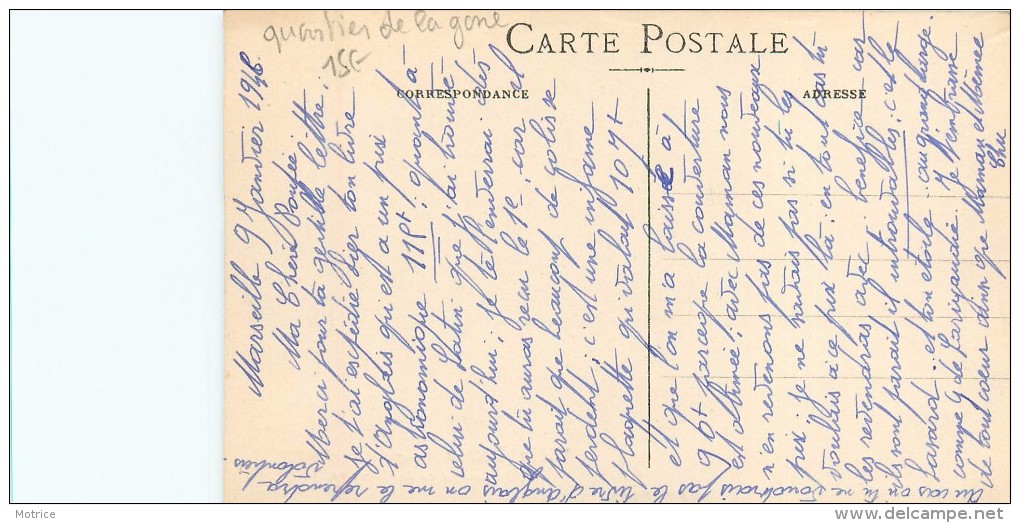 quartier de la gare
15€
CARTE POSTALE
CORRESPONDANCE
ADRESSE
Marseille 9 Janvier 1946
Ma Chérie Poupée
Merci pour ta gentille lettre,
je t'ai expédié hier ton livre
d'Anglais qui est a un prix
astronomique 118f, quant à
celui de Latin que j'ai trouvé
aujourd'hui, je te l'enverrai dès
que tu auras reçu le 1e, car il
parait que beaucoup de colis se
perdent, c'est une infâme
plaquette qui valait 107f
et que l'on m'a laissé à
96f parceque la couverture
est abimée, avec Maman nous
n'en revenons pas de ces nouveaux
prix, je ne savais pas si tu les
voulais à ce prix là, en tout cas tu
les revendras avec bénéfice car
ils sont parait il introuvables, c'est le
hasard et ton étoile
comme 9 de Larigaudie. Je t'embrasse
de tout coeur ainsi que Maman et Mémée
Au cas où tu ne voudrais pas le livre d'Anglais on me le reprendra
volontiers.
Motrice
delcampe.net